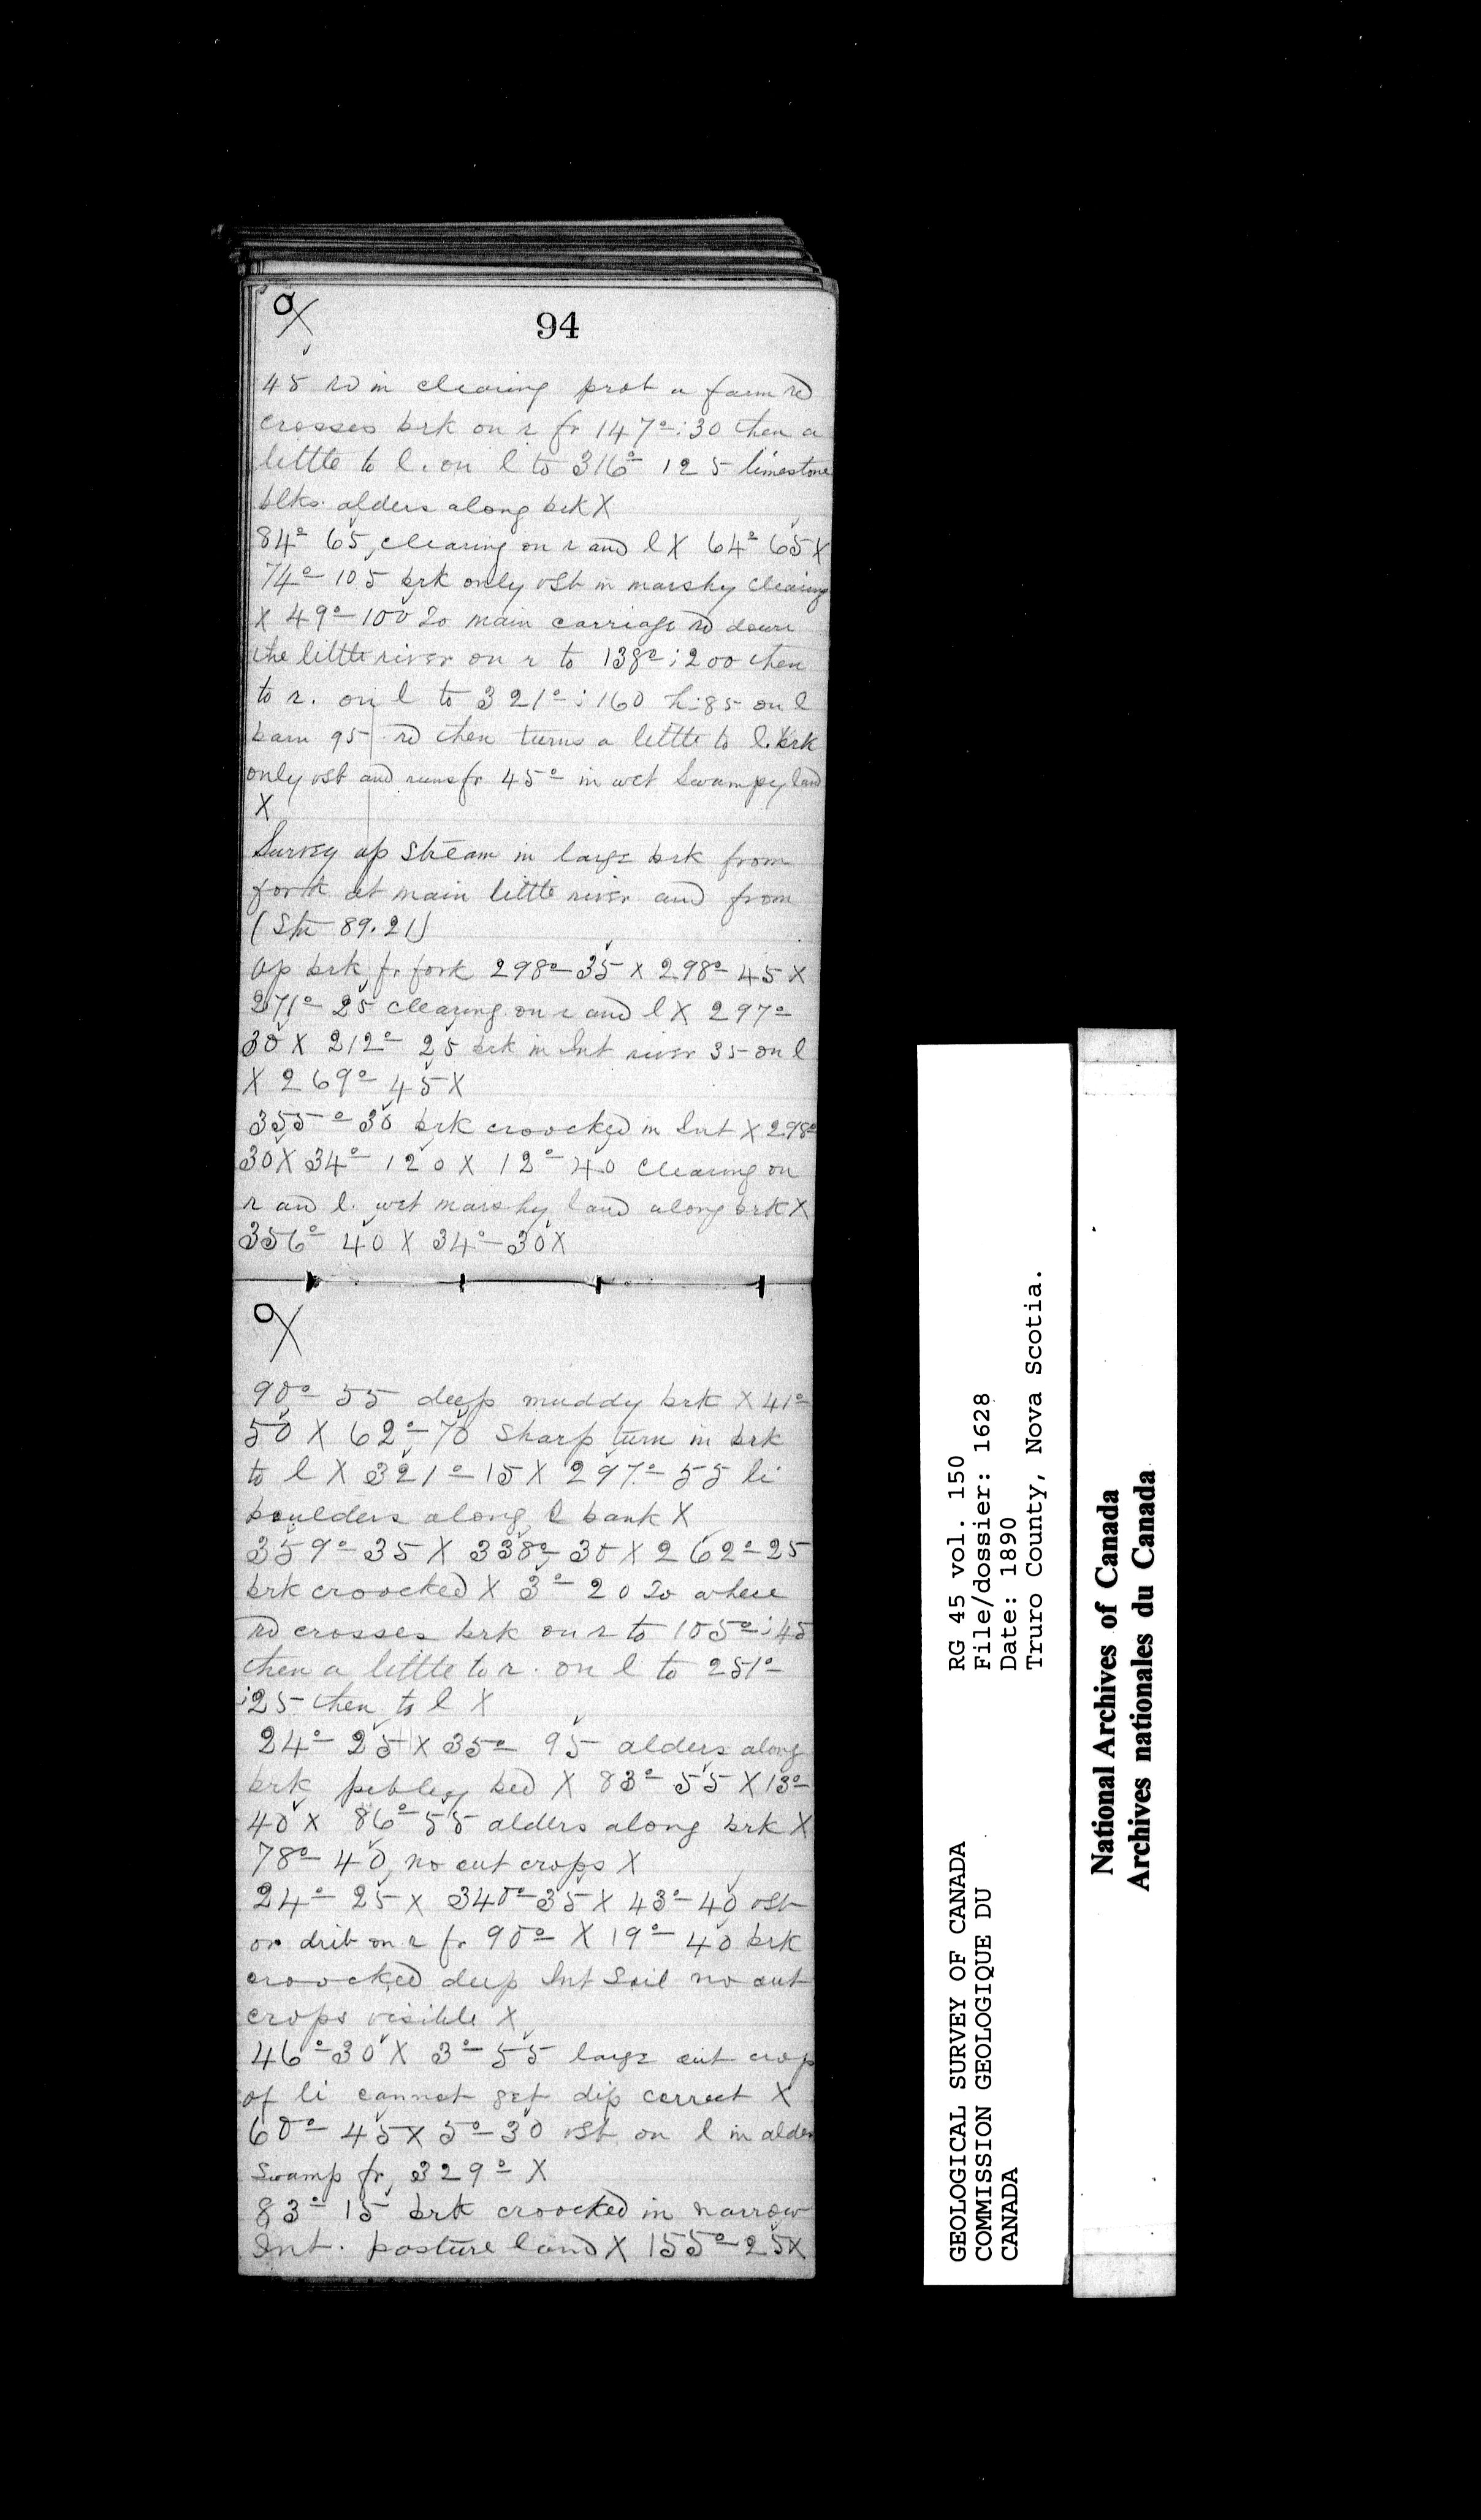 94
45 rd in clearing prob a farm rd
crosses brk on r fr 147°:30 then a
little to l. on l to 316° 125 limestone
blks. alders along brk X
84° 65, clearing on r and l X 64° 65 X
74° 105 brk only vsb in marshy clearing
X 49° 100 To main carriage rd down
the little river on r to 138°:200 then
to r. on l to 321°:160 h:85 on l
barn 95 rd then turns a little to l. brk
only vsb and runs fr 45° in wet Swampy land
X
Survey up stream in large brk from
fork at main little river and from
(Stn 89.21)
up brk fr fork 298° 35 X 298° 45 X
271° 25 clearing on r and l X 297°
30 X 212° 25 brk in Int river 35 on l
X 269° 45 X
355° 30 brk croocked in Int X 298°
30 X 34° 120 X 12° 40 clearing on
r and l. wet marshy land along brk X
356° 40 X 34° 30 X
90° 55 deep muddy brk X 41°
50 X 62° 70 Sharp turn in brk
to l X 321° 15 X 297° 55 li
boulders along l bank X
359° 35 X 338° 30 X 262° 25
brk croocked X 3° 20 To where
rd crosses brk on r to 105°:45
then a little to r. on l to 251°
:25 then to l X
24° 25 X 35° 95 alders along
brk pebley bed X 83° 55 X 13°
40 X 86° 55 alders along brk X
78° 40, no out crops X
24° 25 X 340° 35 X 43° 40 vsb
or drib on r fr 90° X 19° 40 brk
croocked deep Int Soil no out
crops visible X
46° 30 X 3° 55 large out crop
of li cannot get dip correct X
60° 45 X 5° 30 vsb on l in alder
Swamp fr, 329° X
83° 15 brk croocked in narrow
Int. pasture land X 155° 25 X
GEOLOGICAL SURVEY OF CANADA
COMMISSION GEOLOGIQUE DU
CANADA
RG 45 vol. 150
File/dossier: 1628
Date: 1890
Truro County, Nova Scotia.
National Archives of Canada
Archives nationales du Canada